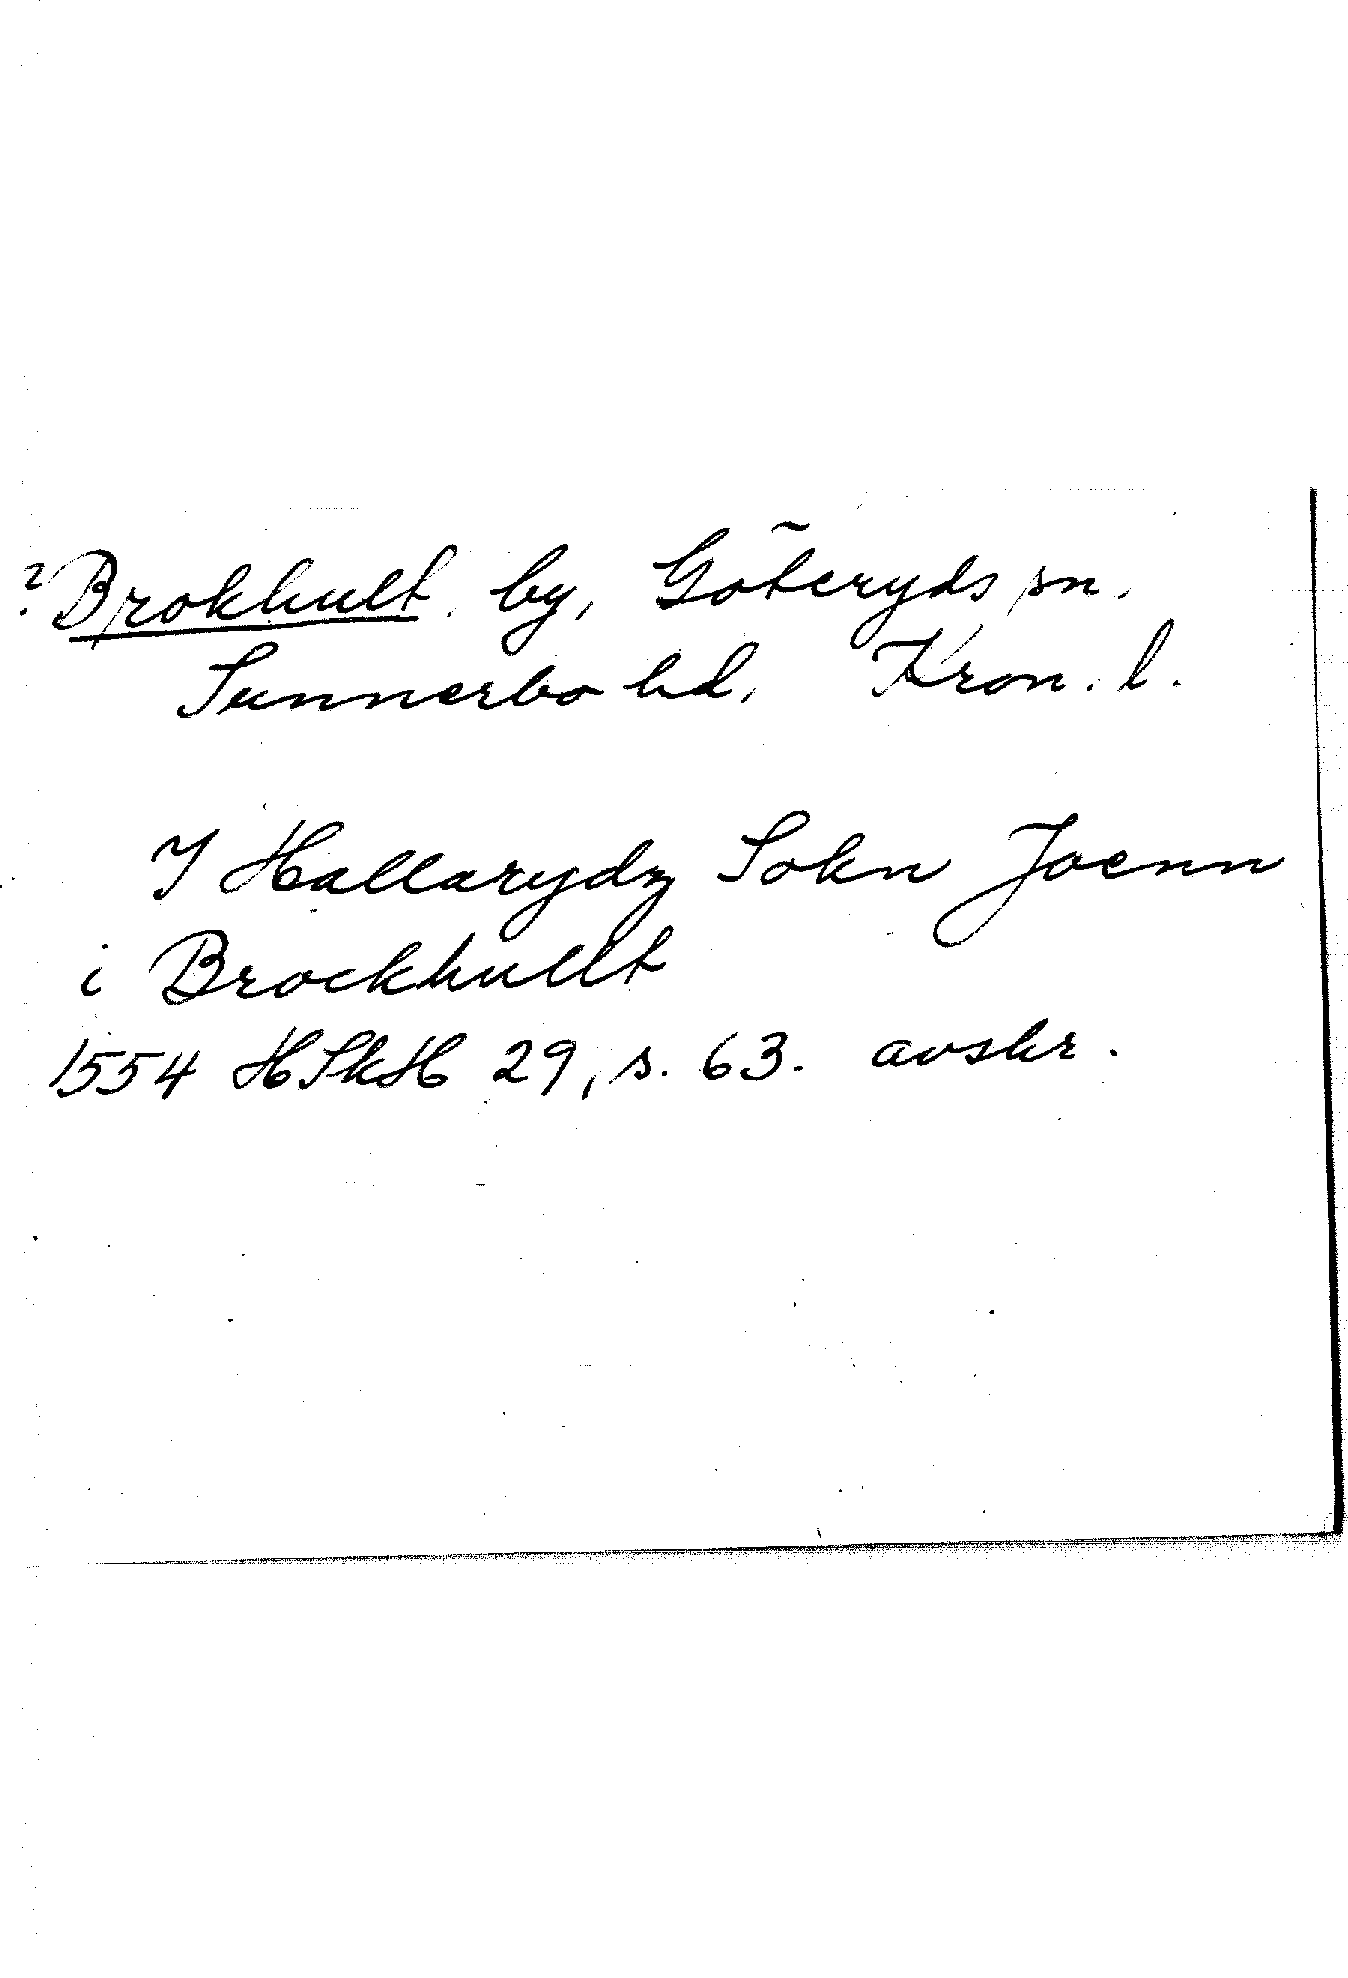 ? Brokhult by, Göteryds sn.
Sunnerbo hd, Kron. l.
I Hallarydz Sokn Joenn
i Brockhullt
1554 HSkH 29, s. 63. avskr.